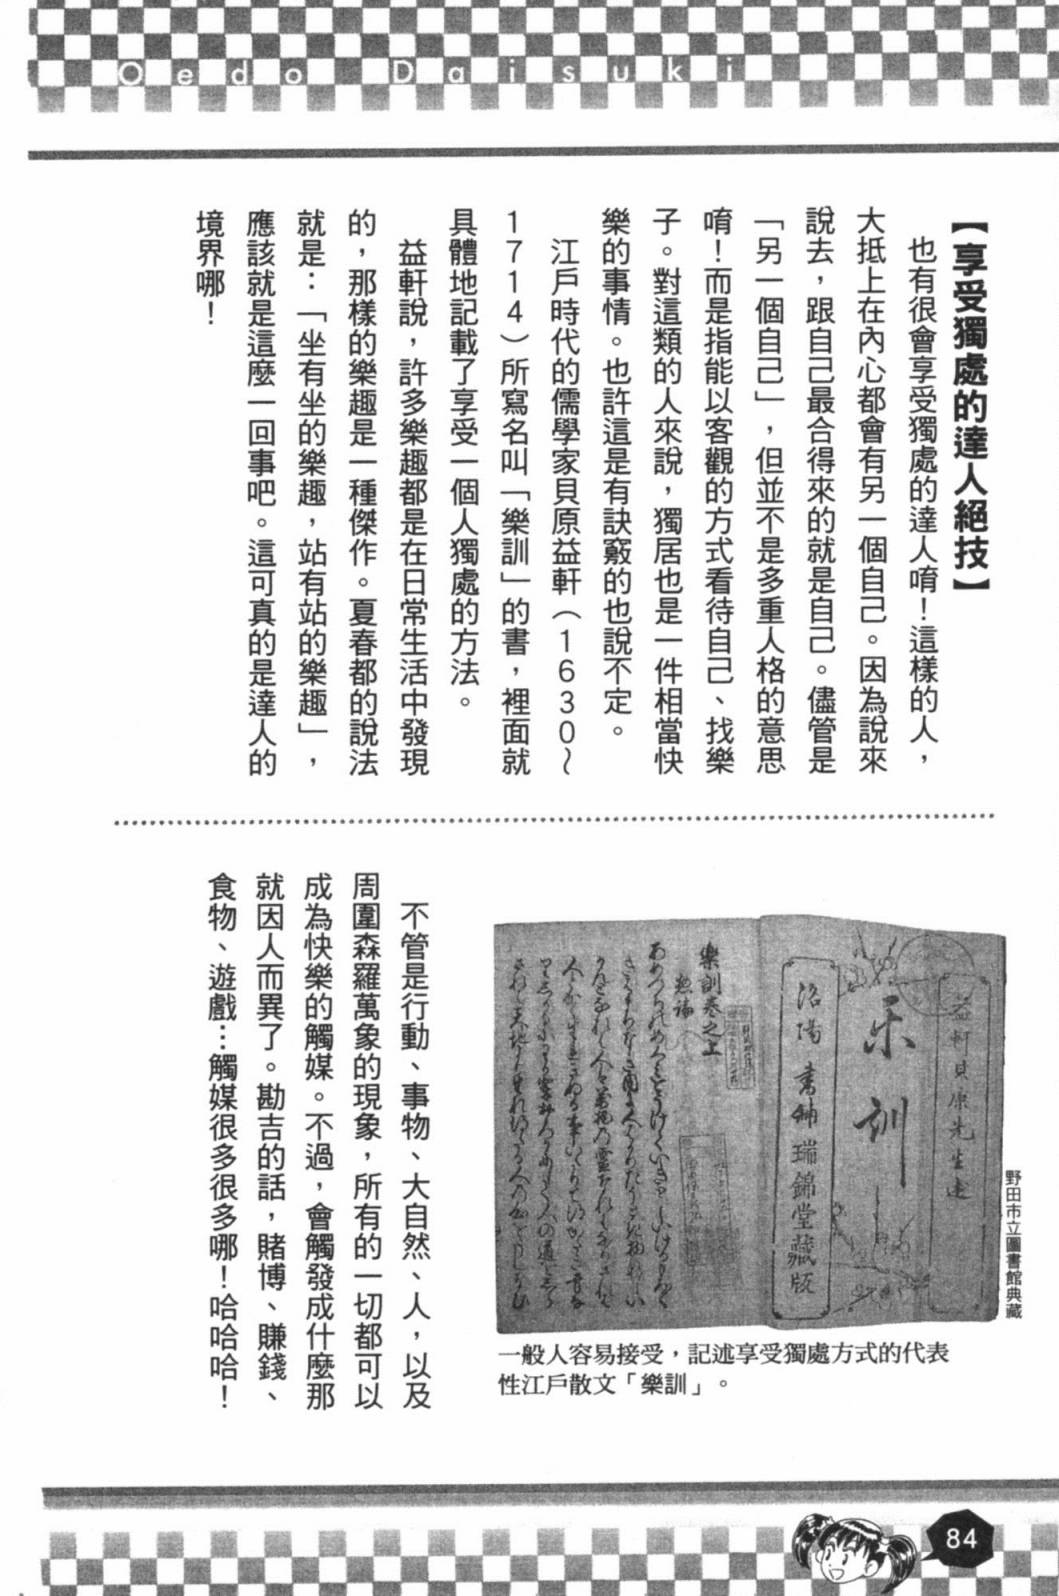 Oedo Daisuki
【享受獨處的達人絕技】
也有很會享受獨處的達人唷！這樣的人，
大抵上在內心都會有另一個自己。因為說來
說去，跟自己最合得來的就是自己。儘管是
「另一個自己」，但並不是多重人格的意思
唷！而是指能以客觀的方式看待自己、找樂
子。對這類的人來說，獨居也是一件相當快
樂的事情。也許這是有訣竅的也說不定。
江戶時代的儒學家貝原益軒（1630～
1714）所寫名叫「樂訓」的書，裡面就
具體地記載了享受一個人獨處的方法。
益軒說，許多樂趣都是在日常生活中發現
的，那樣的樂趣是一種傑作。夏春都的說法
就是：「坐有坐的樂趣，站有站的樂趣」，
應該就是這麼一回事吧。這可真的是達人的
境界哪！
野田市立圖書館典藏
益軒貝原先生述
樂訓
洛陽 書舖瑞錦堂藏版
樂訓卷之上
總論
一般人容易接受，記述享受獨處方式的代表
性江戶散文「樂訓」。
不管是行動、事物、大自然、人，以及
周圍森羅萬象的現象，所有的一切都可以
成為快樂的觸媒。不過，會觸發成什麼那
就因人而異了。勘吉的話，賭博、賺錢、
食物、遊戲…觸媒很多很多哪！哈哈哈！
84